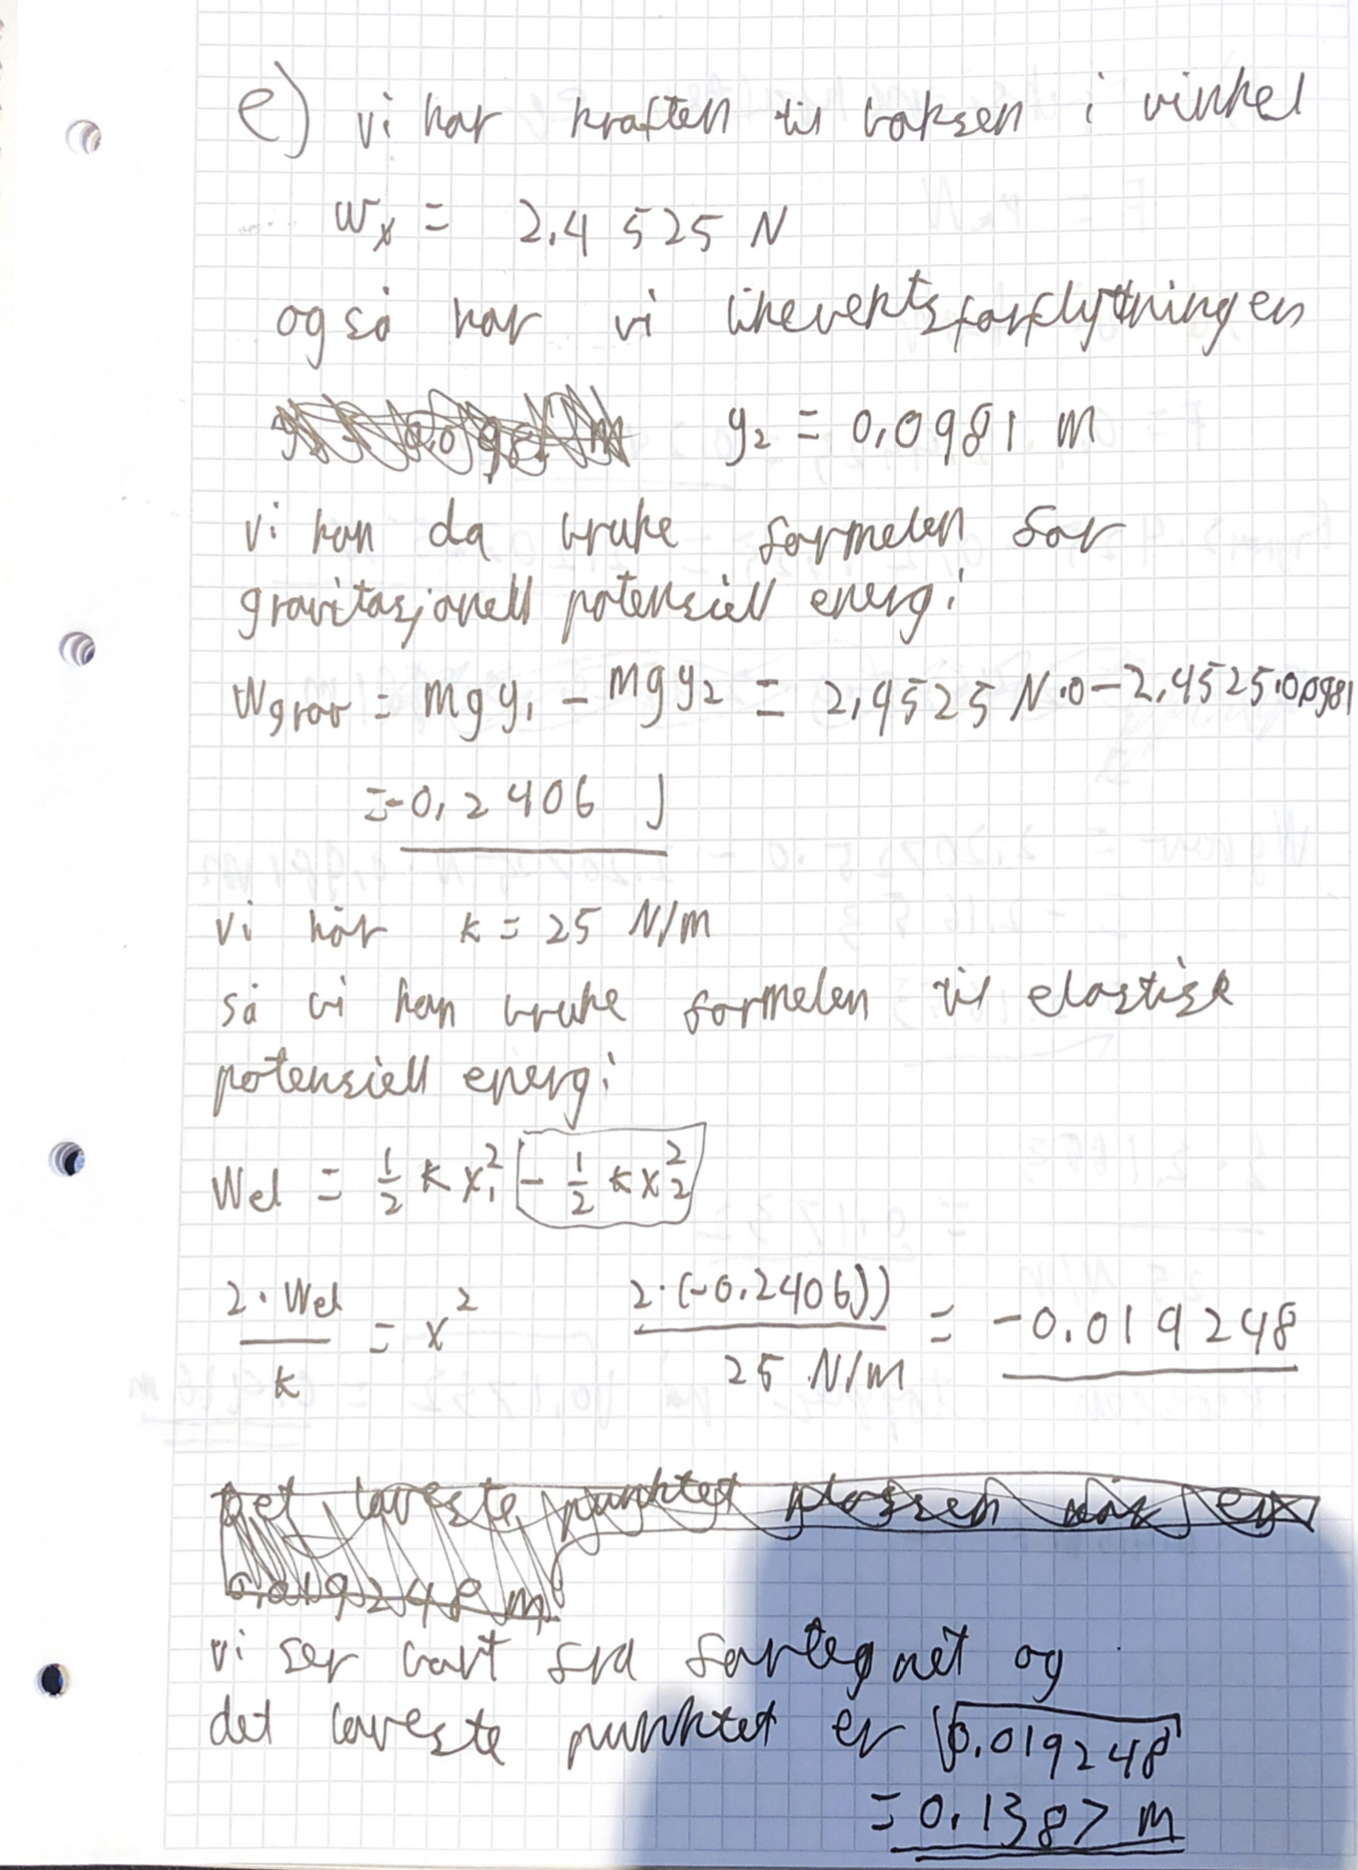 e) vi har kraften til boksen i vinkel
wx = 2.4525 N
også har vi likevektsforflytningen
y2 = 0,0981 m
vi kan da bruke formelen for
gravitasjonell potensiell energi
Wgrav = mgy1 - mgy2 = 2,4525 N·0-2,4525·0,0981
=-0,2406 J
vi har k = 25 N/m
så vi kan bruke formelen til elastisk
potensiell energi
Wel = 1/2 k x1² - 1/2 k x2²
2·Wel/k = x² 2·(-0.2406))/25 N/m = -0.019248
Det laveste punktet klossen når er
0.019248 m
vi ser bort fra fortegnet og
det laveste punktet er √0.019248
= 0.1387 m